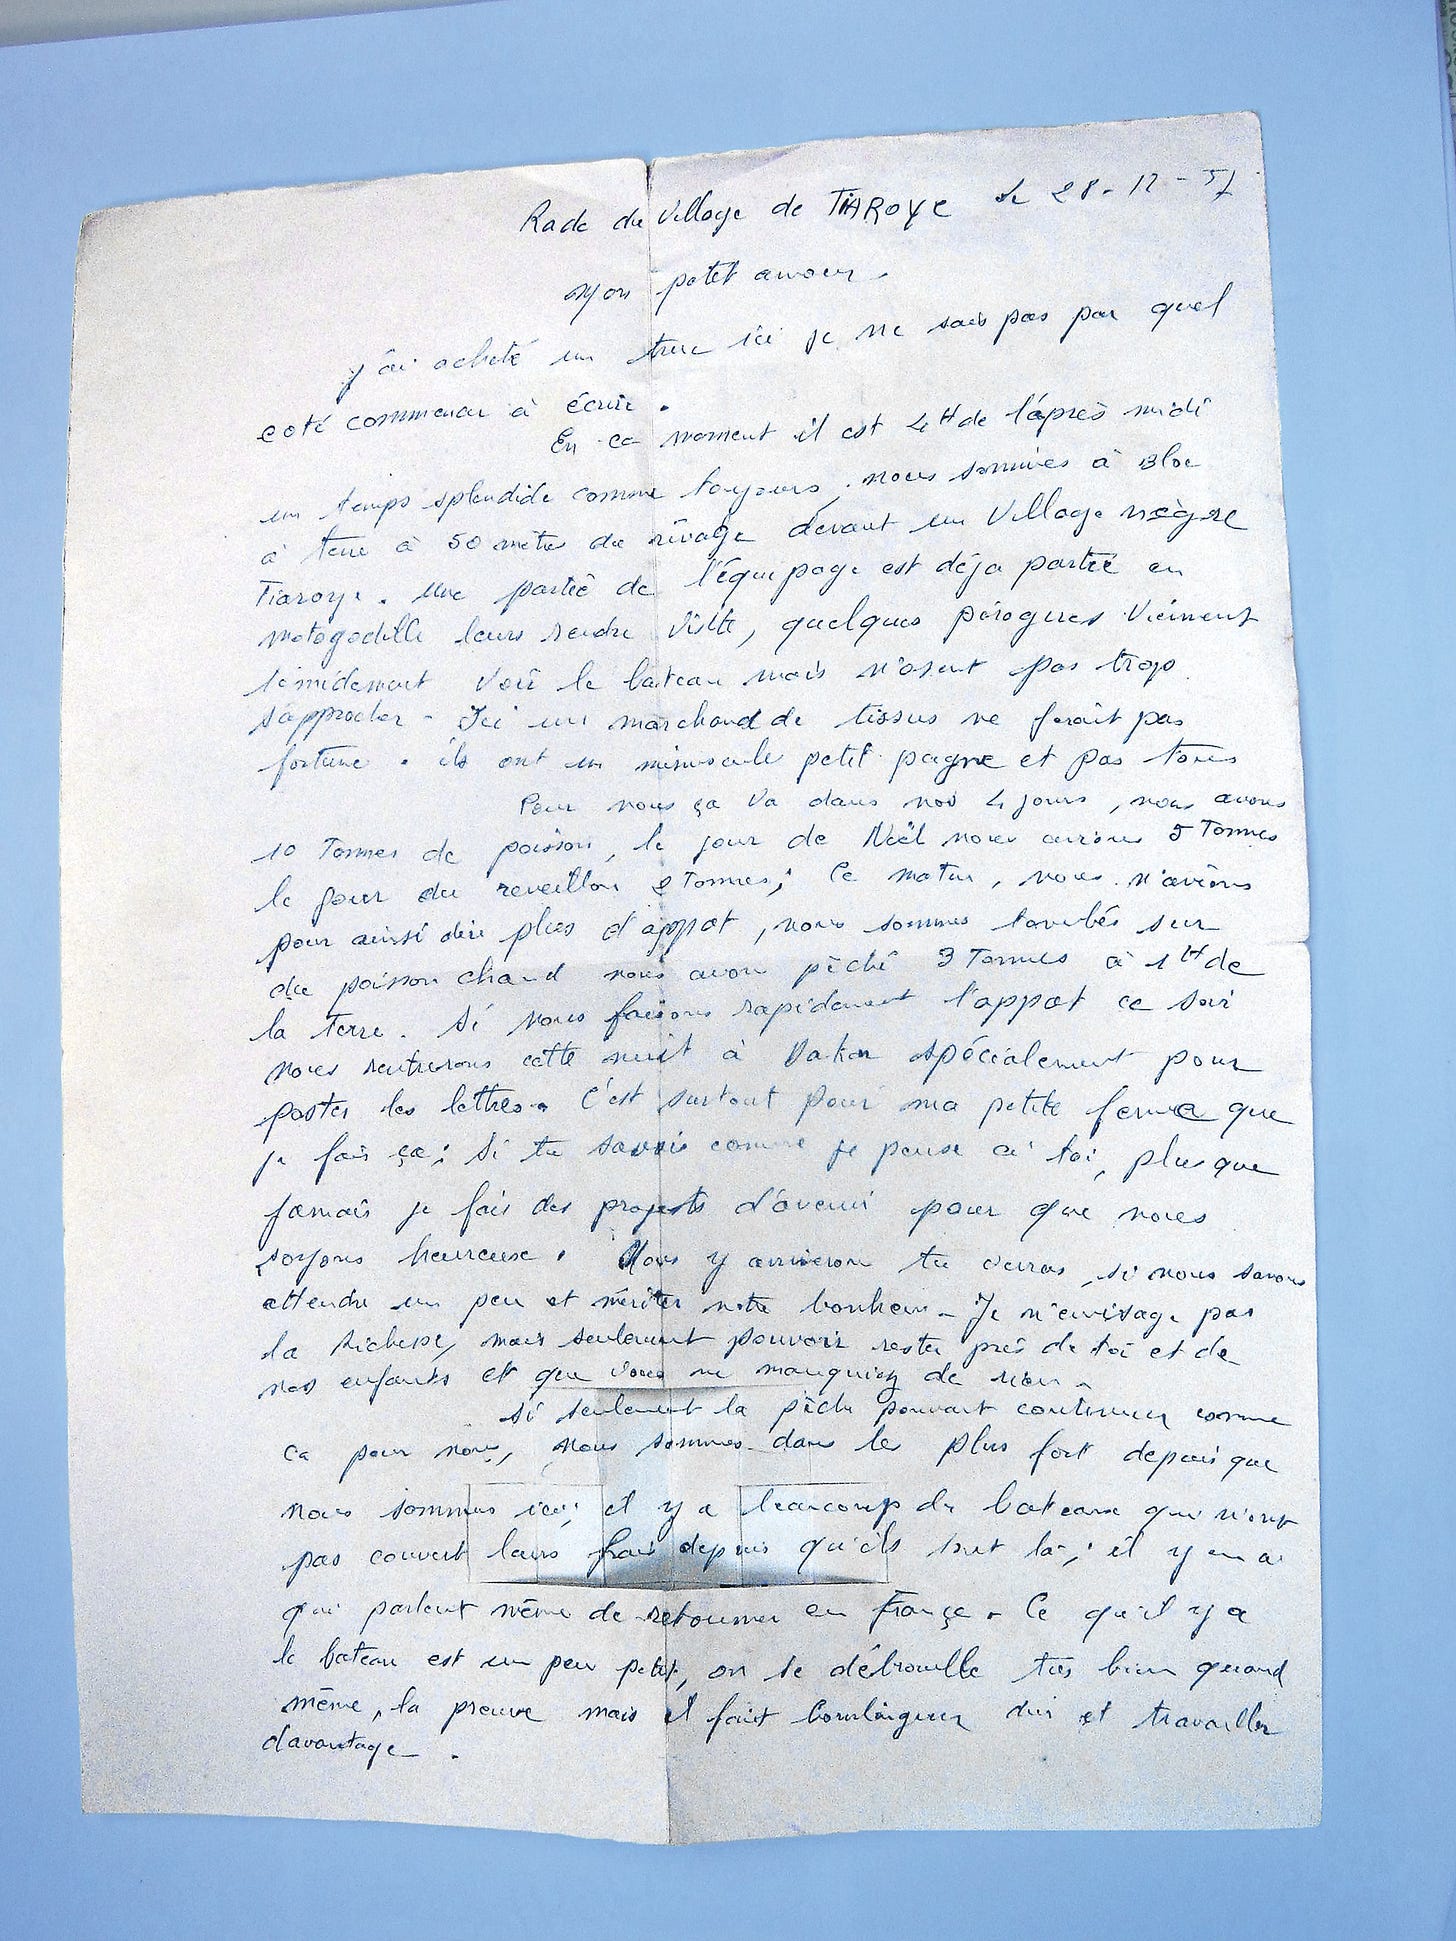 Rade du Village de TIAROYE le 28-12-57
Mon petit amour.
J'ai acheté un truc ici je ne sais pas par quel
coté commencer à écrire.
En ce moment il est 4H de l'après midi
un temps splendide comme toujours, nous sommes à Bloc
à terre à 50 mètre du rivage devant un Village nègre
Tiaroye. Une partie de l'équipage est déja partie en
motogodille leurs rendre visite, quelques pirogues viennent
timidement voir le bateau mais n'osent pas trop
s'approcher - Ici un marchand de tissus ne ferait pas
fortune. ils ont un minuscule petit pagne et pas tous
Pour nous ça va dans nos 4 jours, nous avons
10 Tonnes de poisson, le jour de Noël nous avions 5 Tonnes
le jour du reveillon 2 Tonnes; Ce matin, nous n'avions
pour ainsi dire plus d'appat, nous sommes tombés sur
du poisson chaud nous avon pêché 3 Tonnes à 1H de
la terre. Si nous faisons rapidement l'appat ce soir
nous rentrerons cette nuit à Dakar spécialement pour
poster les lettres. C'est surtout pour ma petite femme que
je fais ça; Si tu savais comme je pense à toi, plus que
jamais je fais des projets d'avenir pour que nous
soyons heureuse. Nous y arriveron tu verras, si nous savons
attendre un peu et mériter notre bonheur - Je n'envisage pas
la richesse, mais seulement pouvoir rester près de toi et de
nos enfants et que vous ne manquiez de rien -
Si seulement la pêche pouvait continuer comme
ca pour nous, nous sommes dans les plus fort depuis que
nous sommes ici; il y a beaucoup de bateaux qui n'ont
pas couvert leurs frais depuis qu'ils sont là; il y en a
qui parlent même de retourner en France. Ce qu'il y a
le bateau est un peu petit, on se débrouille très bien quand
même, la preuve mais il faut bourlinguer dur et travailler
davantage.